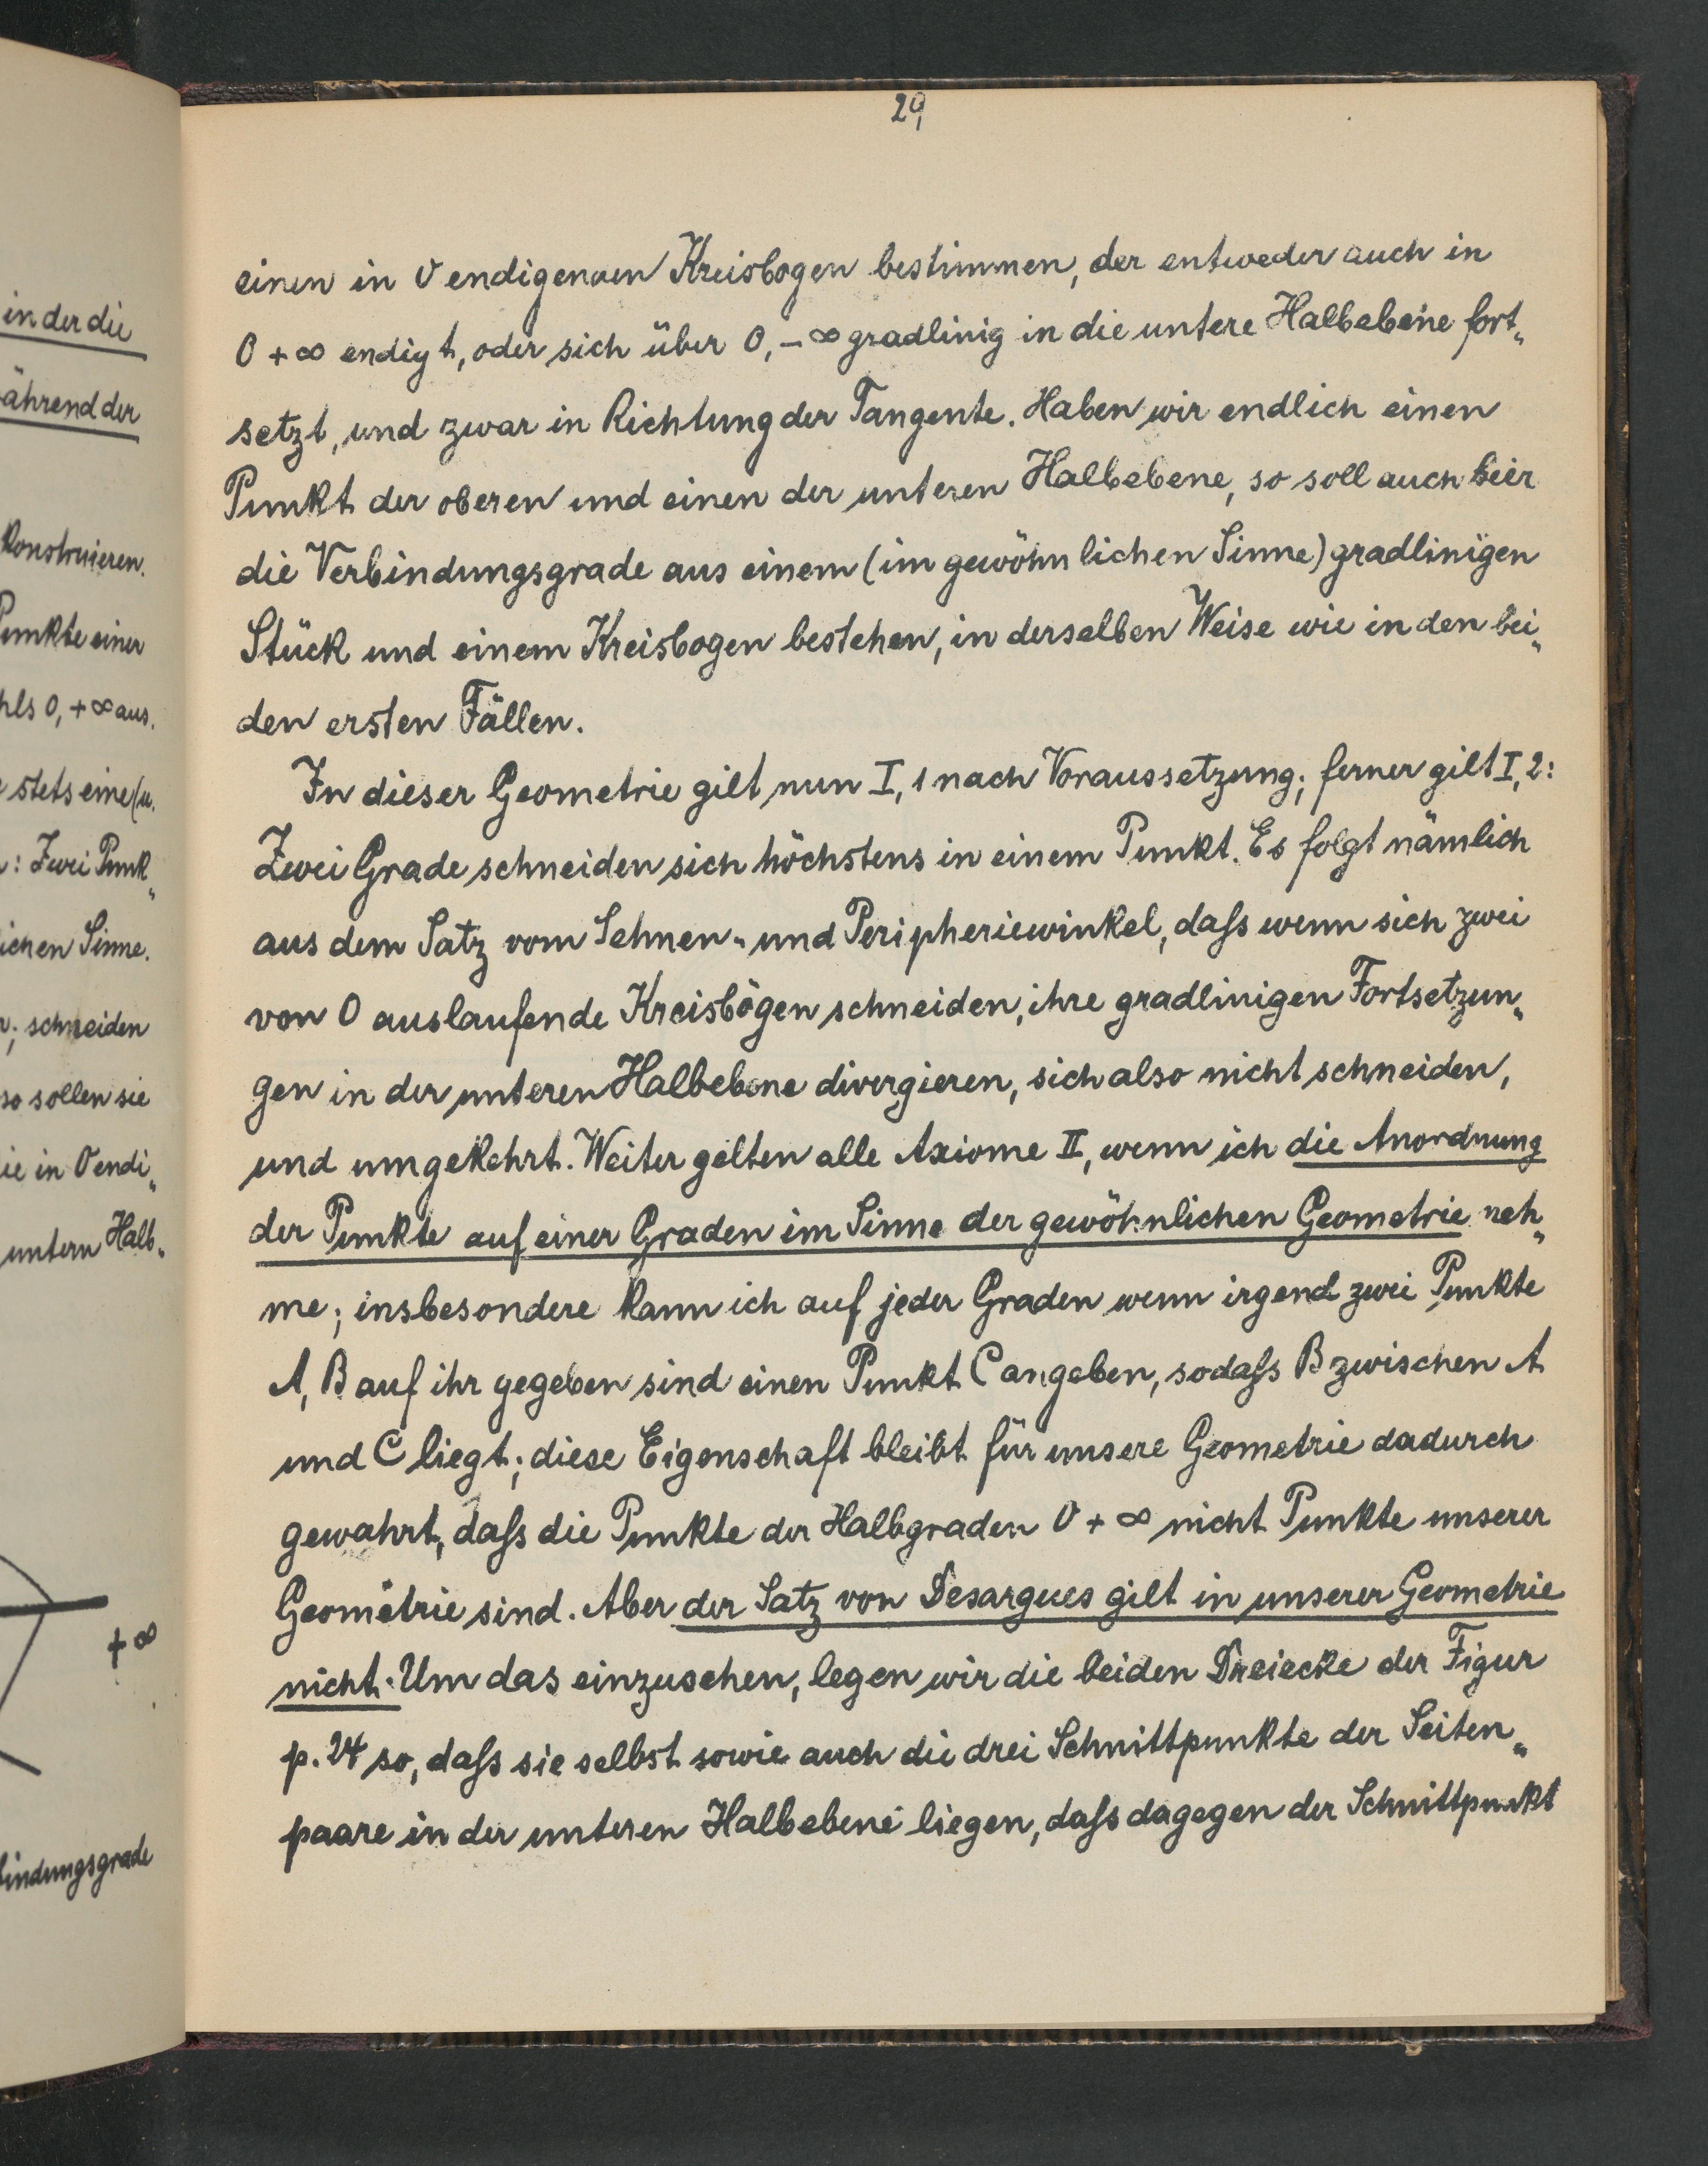 in der die
ährend der
konstruieren.
Punkte einer
hls 0, +∞ aus.
stets eine (u.
: Zwei Punk„
ichen Sinne.
; schneiden
so sollen sie
ie in O endi„
untern Halb„
+∞
bindungsgrade
29,
einen in O endigenden Kreisbogen bestimmen, der entweder auch in
0 + ∞ endigt, oder sich über 0, – ∞ gradlinig in die untere Halbebene fort„
setzt, und zwar in Richtung der Tangente. Haben wir endlich einen
Punkt der oberen und einen der unteren Halbebene, so soll auch hier
die Verbindungsgrade aus einem (im gewöhnlichen Sinne) gradlinigen
Stück und einem Kreisbogen bestehen, in derselben Weise wie in den bei„
den ersten Fällen.
In dieser Geometrie gilt nun I, 1 nach Voraussetzung; ferner gilt I, 2:
Zwei Grade schneiden sich höchstens in einem Punkt. Es folgt nämlich
aus dem Satz vom Sehnen„ und Peripheriewinkel, daſs wenn sich zwei
von O auslaufende Kreisbögen schneiden, ihre gradlinigen Fortsetzun„
gen in der unteren Halbebene divergieren, sich also nicht schneiden,
und umgekehrt. Weiter gelten alle Axiome II, wenn ich die Anordnung
der Punkte auf einer Graden im Sinne der gewöhnlichen Geometrie neh„
me; insbesondere kann ich auf jeder Graden wenn irgend zwei Punkte
A, B auf ihr gegeben sind einen Punkt C angeben, sodaſs B zwischen A
und C liegt; diese Eigenschaft bleibt für unsere Geometrie dadurch
gewahrt, daſs die Punkte der Halbgraden 0 + ∞ nicht Punkte unserer
Geometrie sind. Aber der Satz von Desargues gilt in unserer Geometrie
nicht. Um das einzusehen, legen wir die beiden Dreiecke der Figur
p. 24 so, daſs sie selbst sowie auch die drei Schnittpunkte der Seiten„
paare in der unteren Halbebene liegen, daſs dagegen der Schnittpunkt